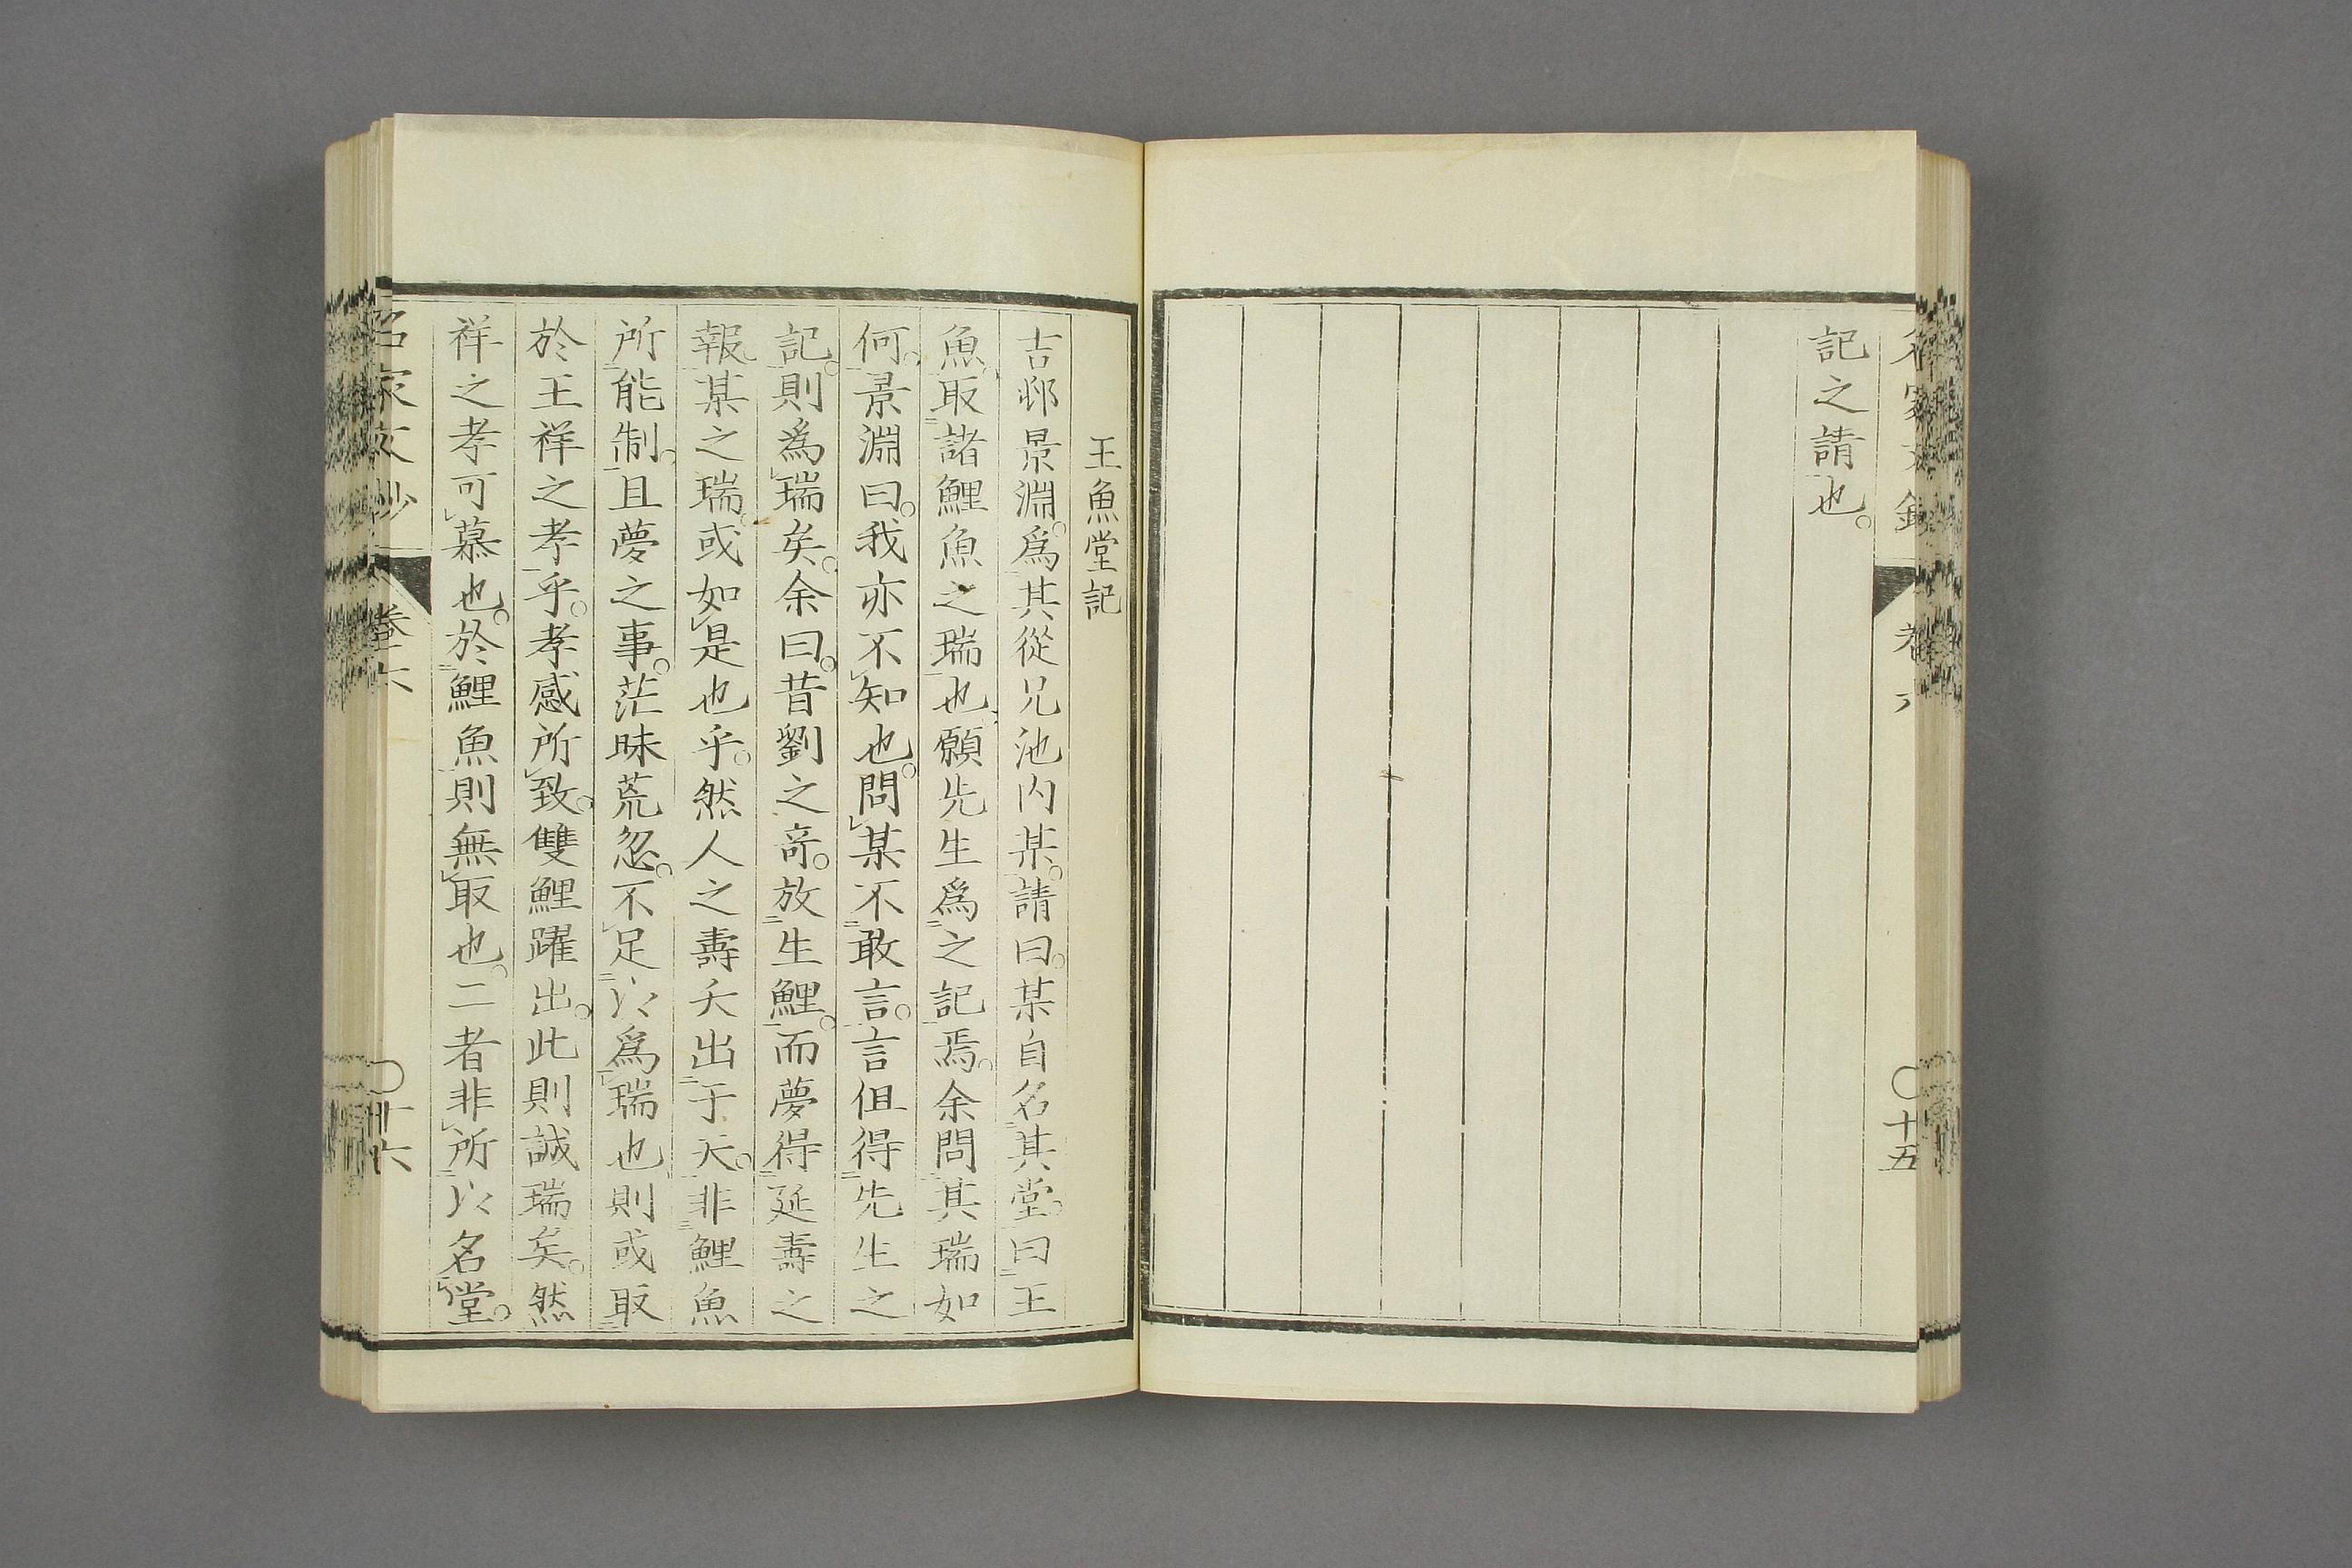 記之請也。
王魚堂記
吉邨景淵。爲其從兄池内某。請曰。某自名其堂。曰王
魚取諸鯉魚之瑞也願先生爲之記焉。余問其瑞如
何。景淵曰。我亦不知也。問某不敢言。言但得先生之
記。則為瑞矣。余曰。昔劉之奇。放生鯉。而夢得延壽之
報。某之瑞。或如是也乎。然人之壽夭出于天。非鯉魚
所能制。且夢之事。茫昧荒忽。不足以爲瑞也則或取
於王祥之孝乎。孝感所致。雙鯉躍出。此則誠瑞矣。然
祥之孝可慕也。於鯉魚則無取也。二者非所以名堂。
名家文抄
卷六
〇十五
〇十六